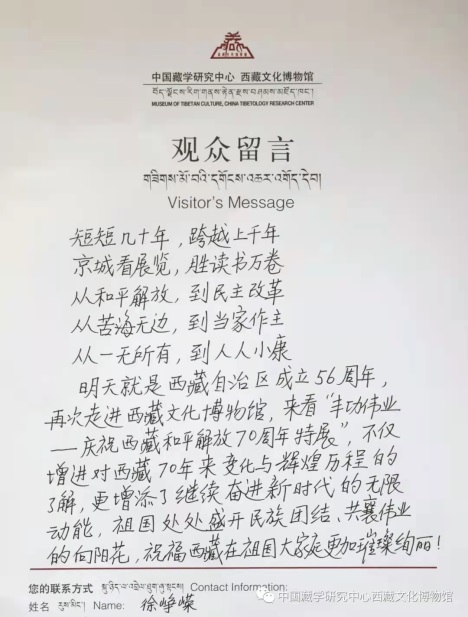 中国藏学研究中心 西藏文化博物馆
MUSEUM OF TIBETAN CULTURE, CHINA TIBETOLOGY RESEARCH CENTER
观众留言
གཟིགས་མོ་བའི་དགོངས་འཆར་འགོད་དེབ།
Visitor's Message
短短几十年，跨越上千年
京城看展览，胜读书万卷
从和平解放，到民主改革
从苦海无边，到当家作主
从一无所有，到人人小康
明天就是西藏自治区成立56周年，
再次走进西藏文化博物馆，来看“丰功伟业
—庆祝西藏和平解放70周年特展”，不仅
增进对西藏70年来变化与辉煌历程的
了解，更增添了继续奋进新时代的无限
动能，祖国处处盛开民族团结、共襄伟业
的向阳花，祝福西藏在祖国大家庭更加璀璨绚丽！
您的联系方式 Contact Information:
姓名 རུས་མིང་། Name: 徐峥嵘
中国藏学研究中心西藏文化博物馆